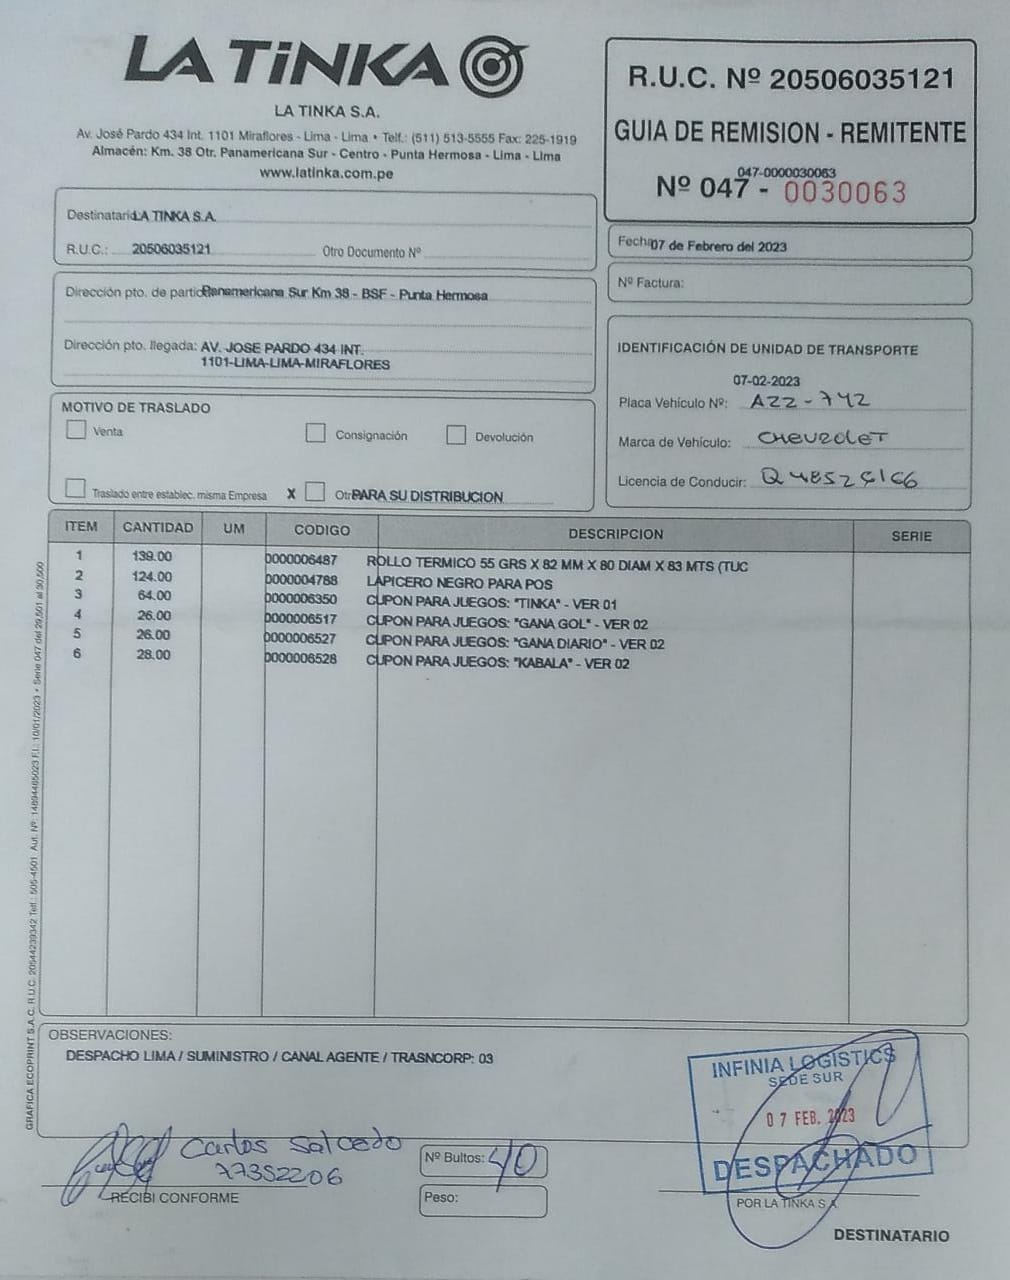 LA TiNKA
LA TINKA S.A.
Av. José Pardo 434 Int. 1101 Miraflores - Lima - Lima • Telf.: (511) 513-5555 Fax: 225-1919
Almacén: Km. 38 Otr. Panamericana Sur - Centro - Punta Hermosa - Lima - Lima
www.latinka.com.pe
R.U.C. Nº 20506035121
GUIA DE REMISION - REMITENTE
047-0000030063
Nº 047 - 0030063
Destinatario LA TINKA S.A.
R.U.C.: 20506035121 Otro Documento Nº
Fecha 07 de Febrero del 2023
Nº Factura:
Dirección pto. de partida Panamericana Sur Km 38 - BSF - Punta Hermosa
Dirección pto. llegada: AV. JOSE PARDO 434 INT.
1101-LIMA-LIMA-MIRAFLORES
IDENTIFICACIÓN DE UNIDAD DE TRANSPORTE
07-02-2023
Placa Vehículo Nº: AZZ-742
Marca de Vehículo: CHEVROLET
Licencia de Conducir:
MOTIVO DE TRASLADO
Venta Consignación Devolución
Traslado entre establec. misma Empresa X Otr PARA SU DISTRIBUCION
ITEM CANTIDAD UM CODIGO DESCRIPCION SERIE
1 139.00 0000006487 ROLLO TERMICO 55 GRS X 82 MM X 80 DIAM X 83 MTS (TUC
2 124.00 0000004788 LAPICERO NEGRO PARA POS
3 64.00 0000006350 CUPON PARA JUEGOS: "TINKA" - VER 01
4 26.00 0000006517 CUPON PARA JUEGOS: "GANA GOL" - VER 02
5 26.00 0000006527 CUPON PARA JUEGOS: "GANA DIARIO" - VER 02
6 28.00 0000006528 CUPON PARA JUEGOS: "KABALA" - VER 02
GRAFICA ECOPRINT S.A.C. R.U.C. 20544239342 Telf.: 505-4501 Aut. Nº: 14894485023 F.I.: 10/01/2023 • Serie 047 del 29,501 al 30,500
OBSERVACIONES:
DESPACHO LIMA / SUMINISTRO / CANAL AGENTE / TRASNCORP: 03
INFINIA LOGISTICS
SEDE SUR
07 FEB. 2023
DESPACHADO
Carlos Salcedo
77352206
RECIBI CONFORME
Nº Bultos: 40
Peso:
POR LA TINKA S.A.
DESTINATARIO